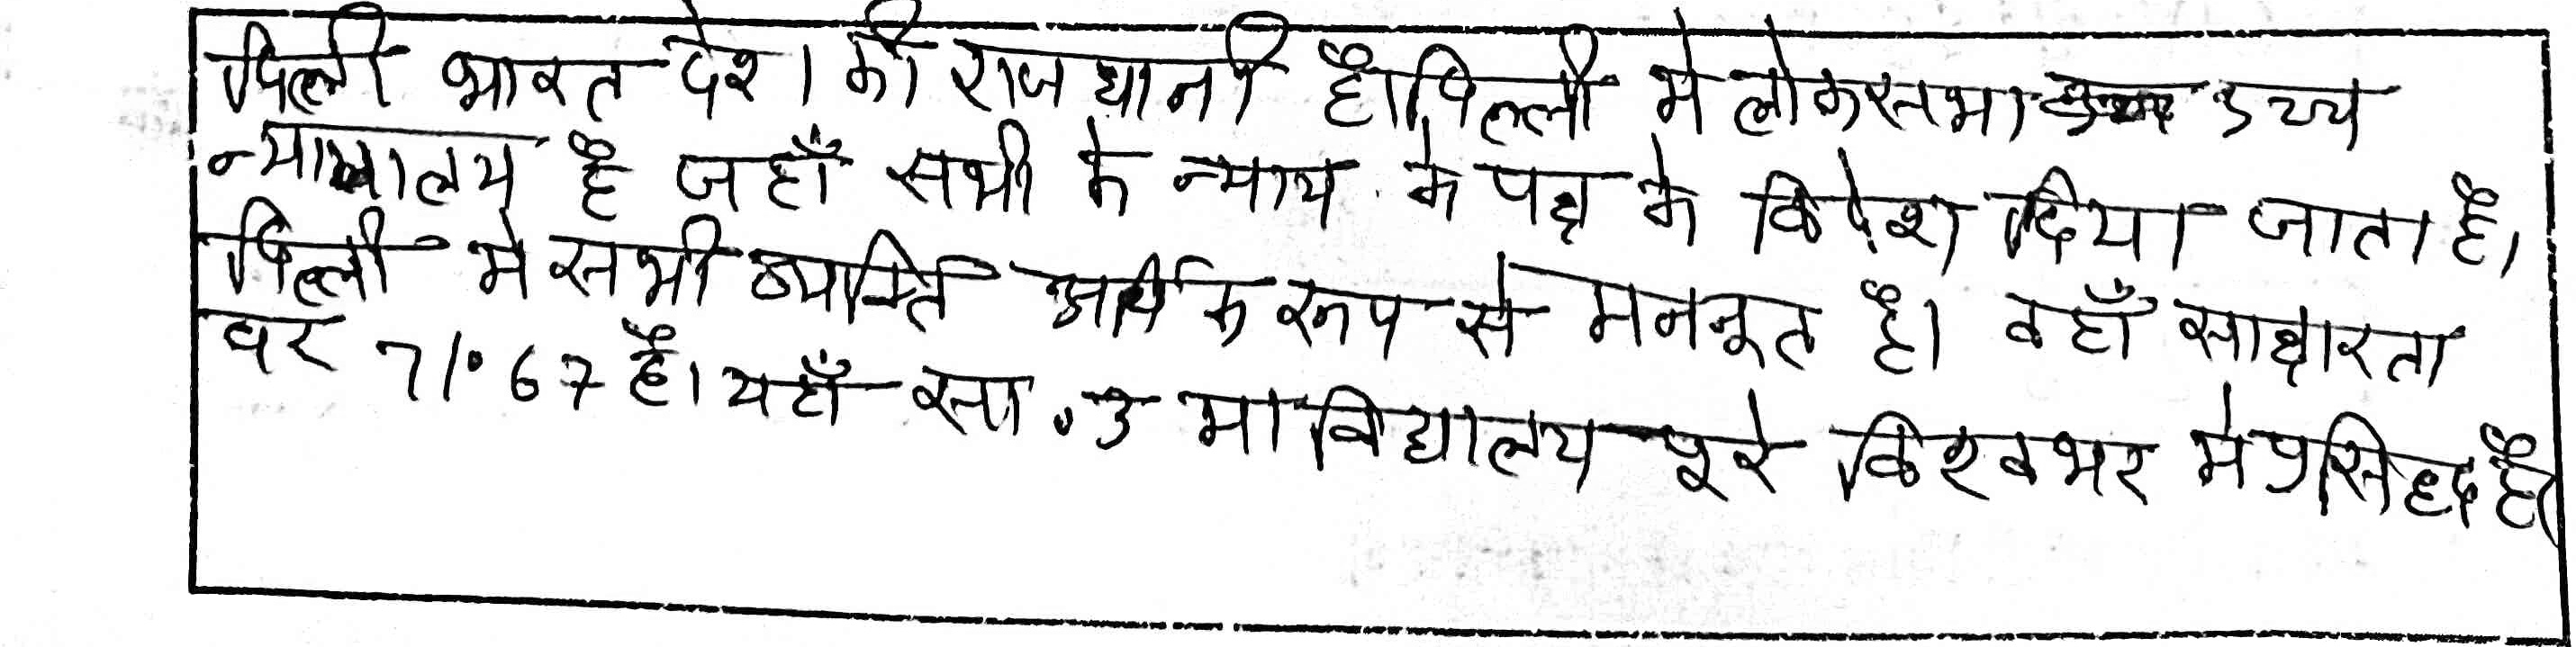 दिल्ली भारत देश की राजधानी है। दिल्ली मे लोकसभा उच्च
न्यायालय है जहाँ सभी के न्याय के पक्ष के विदेश दिया जाता है।
दिल्ली मे सभी व्यक्ति आर्थिक रूप से मजबूत है। वहाँ साक्षारता
दर 71.67 है। यहाँ सा.उ मा विद्यालय पूरे विश्वभर मे प्रसिध्द है।